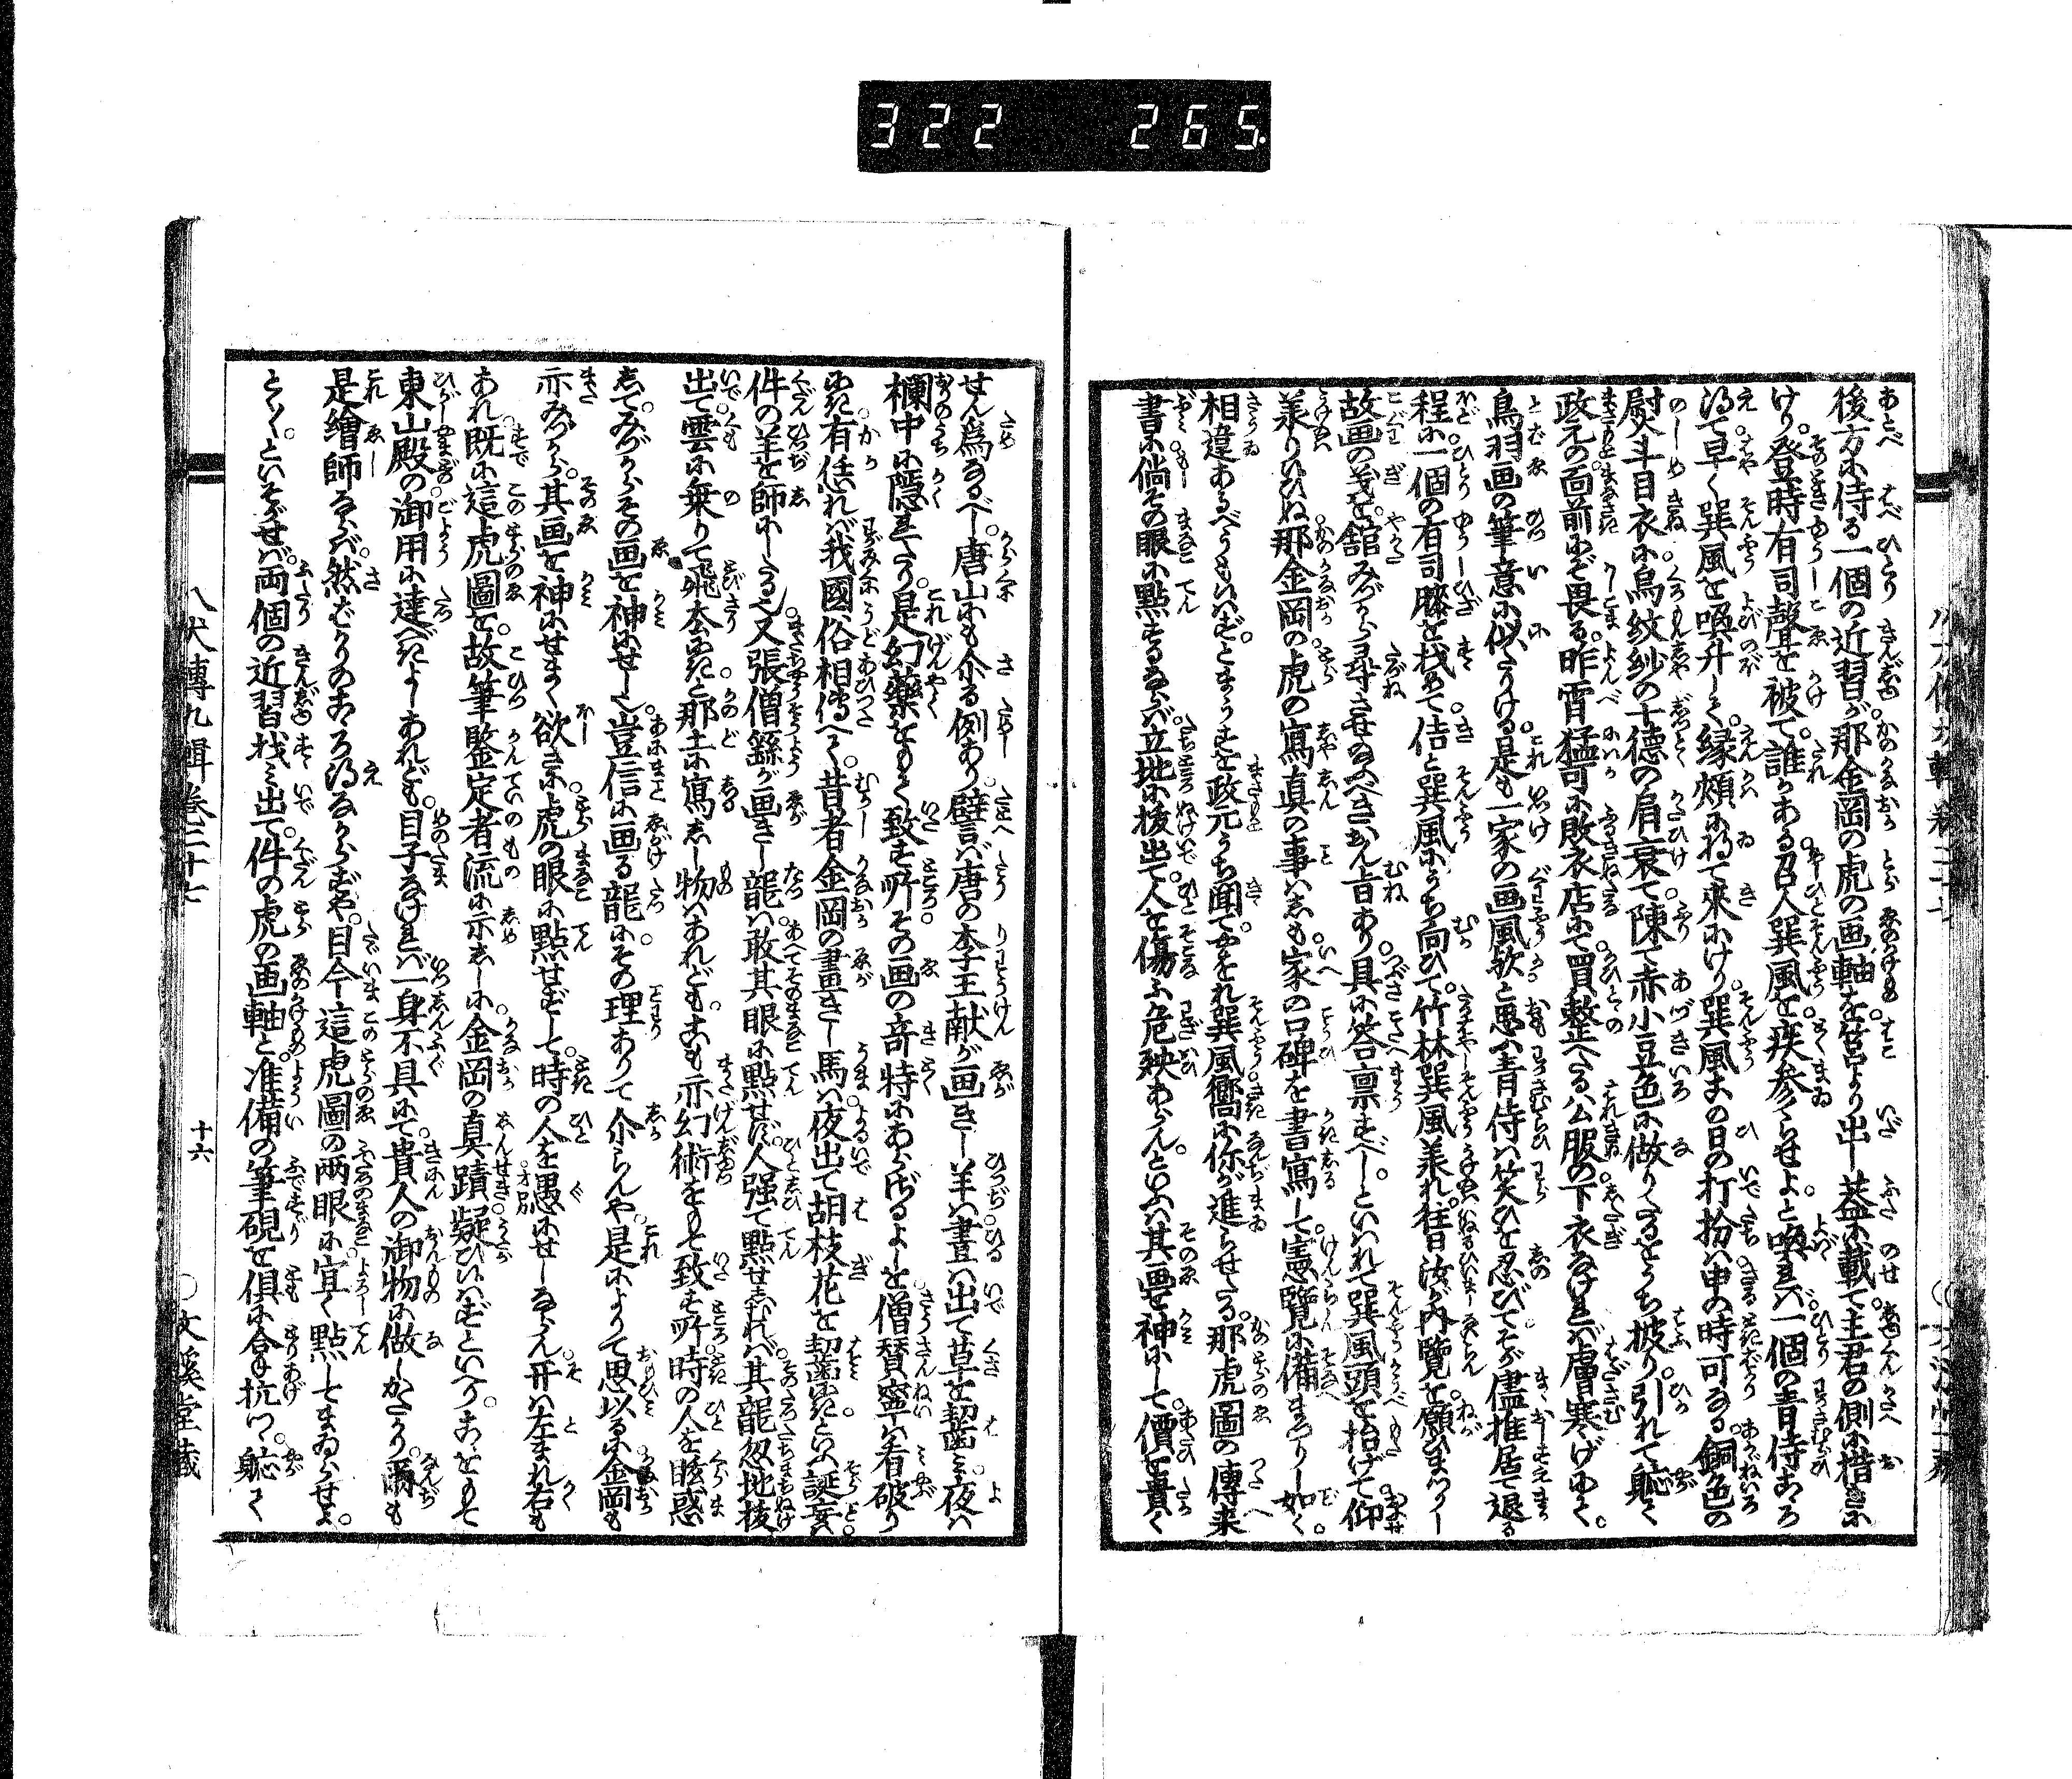 322 265.
後方に侍る一個の近習が那金岡の虎の画軸を筥より出し蓋に載て主君の側に措きに
けり。登時有司聲を被て。誰かある召人巽風を疾参らせよ。と喚れば。一個の青侍こゝろ
得て早く巽風を喚升して。縁頬に将て来にけり。巽風この日の打扮は申の時可なる。銅色の
熨斗目衣に烏紋紗の十徳の肩衰て。陳て赤小豆色に做りたるをうち披り。引れて軈て
政元の面前にぞ畏る。昨宵猛可に敗衣店にて買整へたる公服の下衣なければ膚寒げにて。
鳥羽画の筆意に似たりける。是も一家の画風歟と思ふ青侍は笑ひを忍びてそが儘推居て退る
程に一個の有司膝を找めて佶と巽風にうち向ひて。竹林巽風美れ。往日汝が内覧を願ひまつりし
故画の義を。舘みづから尋させ給ふべきおん旨あり。具に答稟すべし。といはれて巽風頭を抬げて仰
美りひひね。那金岡の虎の寫真の事はしも。家の口碑を書寫して。憲覧に備まつりし如く。
相違あるべうもいはず。とまうすを政元うち聞て。やをれ巽風嚮に你が進らせたる。那虎圖の傳来
書に倘その眼に點するならば立地に抜出て。人を傷ふ危殃あらん。といふは其画を神にして價を貴く
せん爲なるべし。唐山にも尒る例あり。譬ば唐の李王献が画きし羊は晝は出て草を齧み夜は
欄中に隱れたり。是幻藥をもて致す所その画の竒特にあらざるよしを僧賛寧は看破り
にき。有恁れば我國俗相傳へて。昔者金岡の畫きし馬は夜出て胡枝花を齧にきといふ誕妄は
件の羊を師にしたる也。又張僧繇が画きし龍は敢其眼に點せず。人强て點せしかれば其龍忽地抜
出て雲に乗りて飛去にきと。那土に寫しし物はあれども。こも亦幻術をもて致す所。時の人を眩惑
してみづからその画を神にせし也。豈信に画る龍に。その理ありて尒らんや。是によりて思以るに金岡も
亦みづから。其画を神にせまく欲きに虎の眼に點せずして。時の人を愚にせしならん。开は左まれ右も
あれ。既に這虎圖を。故筆鑒定者流に示ししに。金岡の真蹟。疑ひいはずといへり。こゝをもて
東山殿の御用に達べきよしあれども。目子なければ一身不具にて。貴人の御物に做しがたかり。爾も
是繪師ならば。然ばかりのこゝろ得なからずや。目今這虎圖の両眼に宜く點してまゐらせよ。
とく〳〵。といそがせば。両個の近習找み出て。件の虎の画軸と。准備の筆硯を俱に合手抗つ。軈て
八犬傳九輯卷二十七
十六
○文溪堂藏